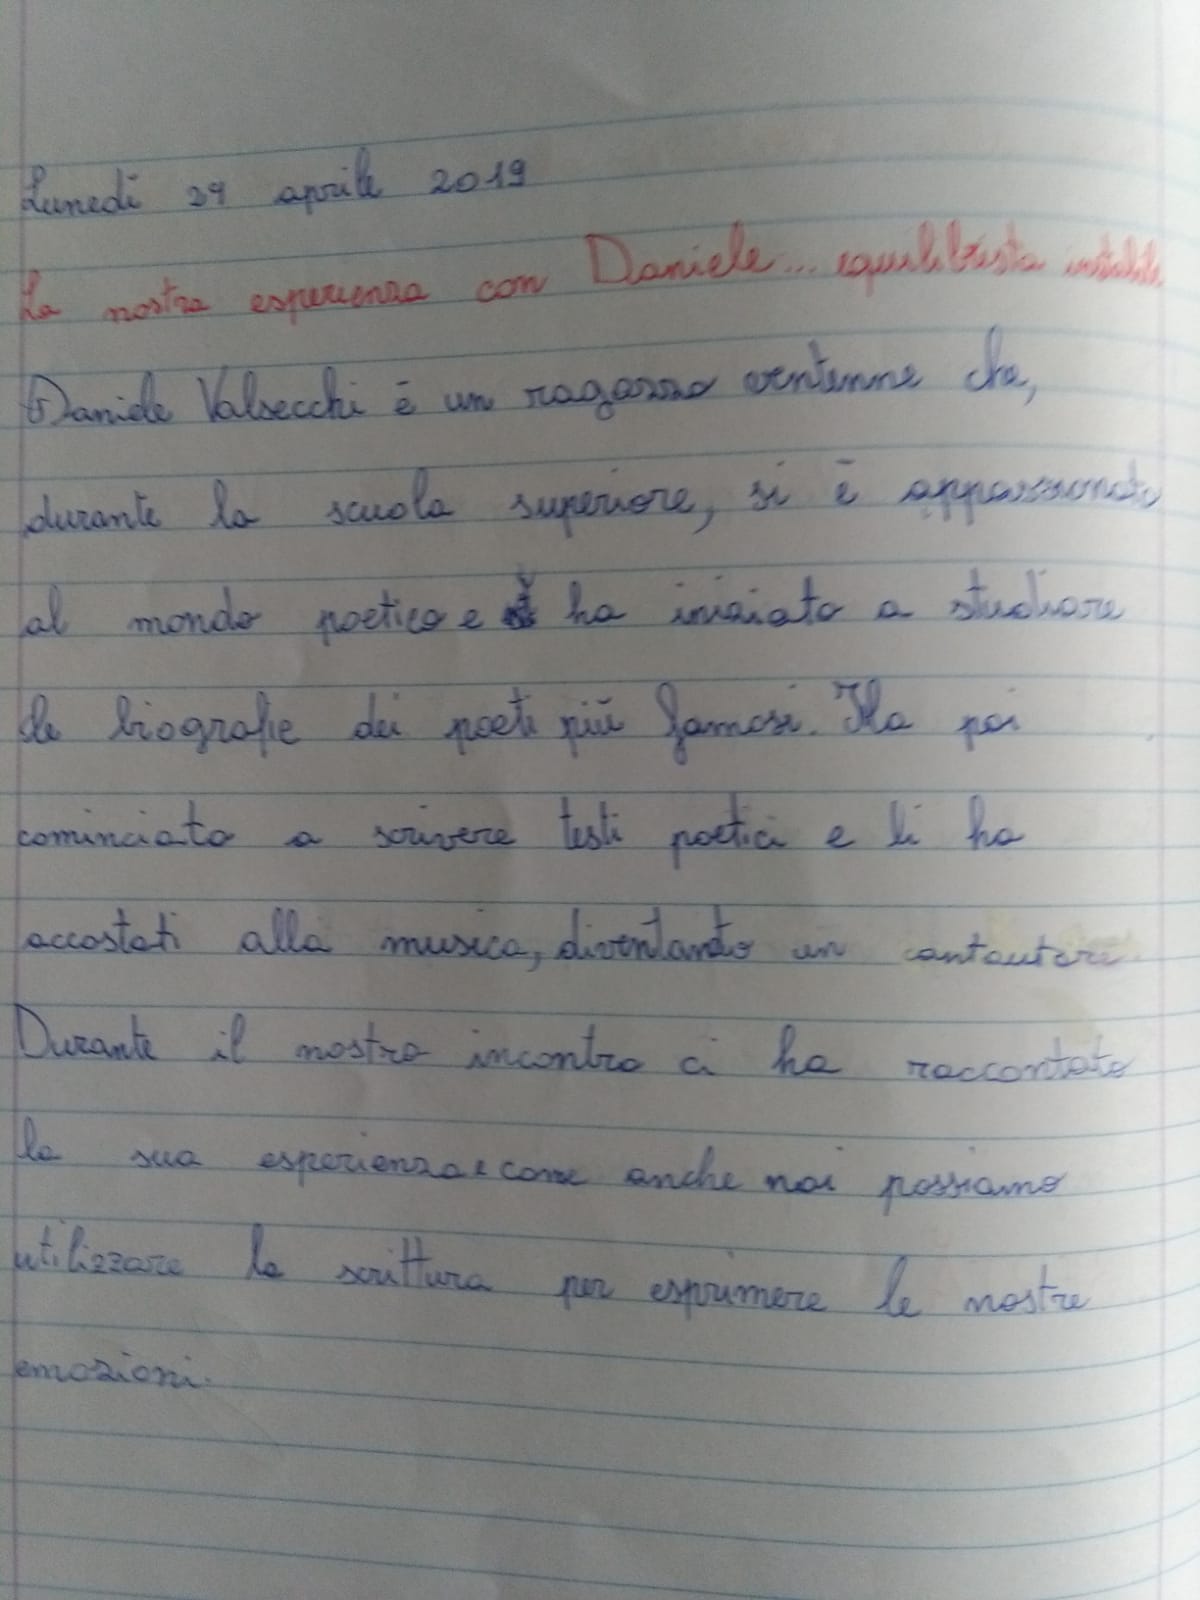 Lunedì 29 aprile 2019
La nostra esperienza con Daniele... equilibrista instabile
Daniele Valsecchi è un ragazzo ventenne che,
durante la scuola superiore, si è appassionato
al mondo poetico e ha iniziato a studiare
le biografie dei poeti più famosi. Ha poi
cominciato a scrivere testi poetici e li ha
accostati alla musica, diventando un cantautore
Durante il nostro incontro ci ha raccontato
la sua esperienza e come anche noi possiamo
utilizzare la scrittura per esprimere le nostre
emozioni.